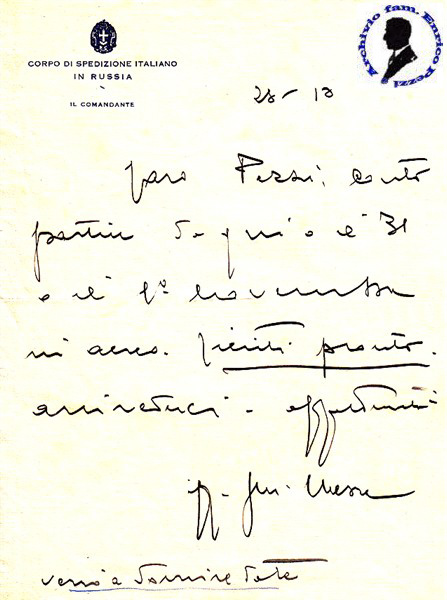 CORPO DI SPEDIZIONE ITALIANO
IN RUSSIA
IL COMANDANTE
Archivio fam. Enrico Pezzi
28-10
Caro Pezzi, conto
partire da qui o il 31
o il 1º novembre
in aereo. Tieniti pronto.
arrivederci - affettuosità
gen. Messe
verrò a dormire da te